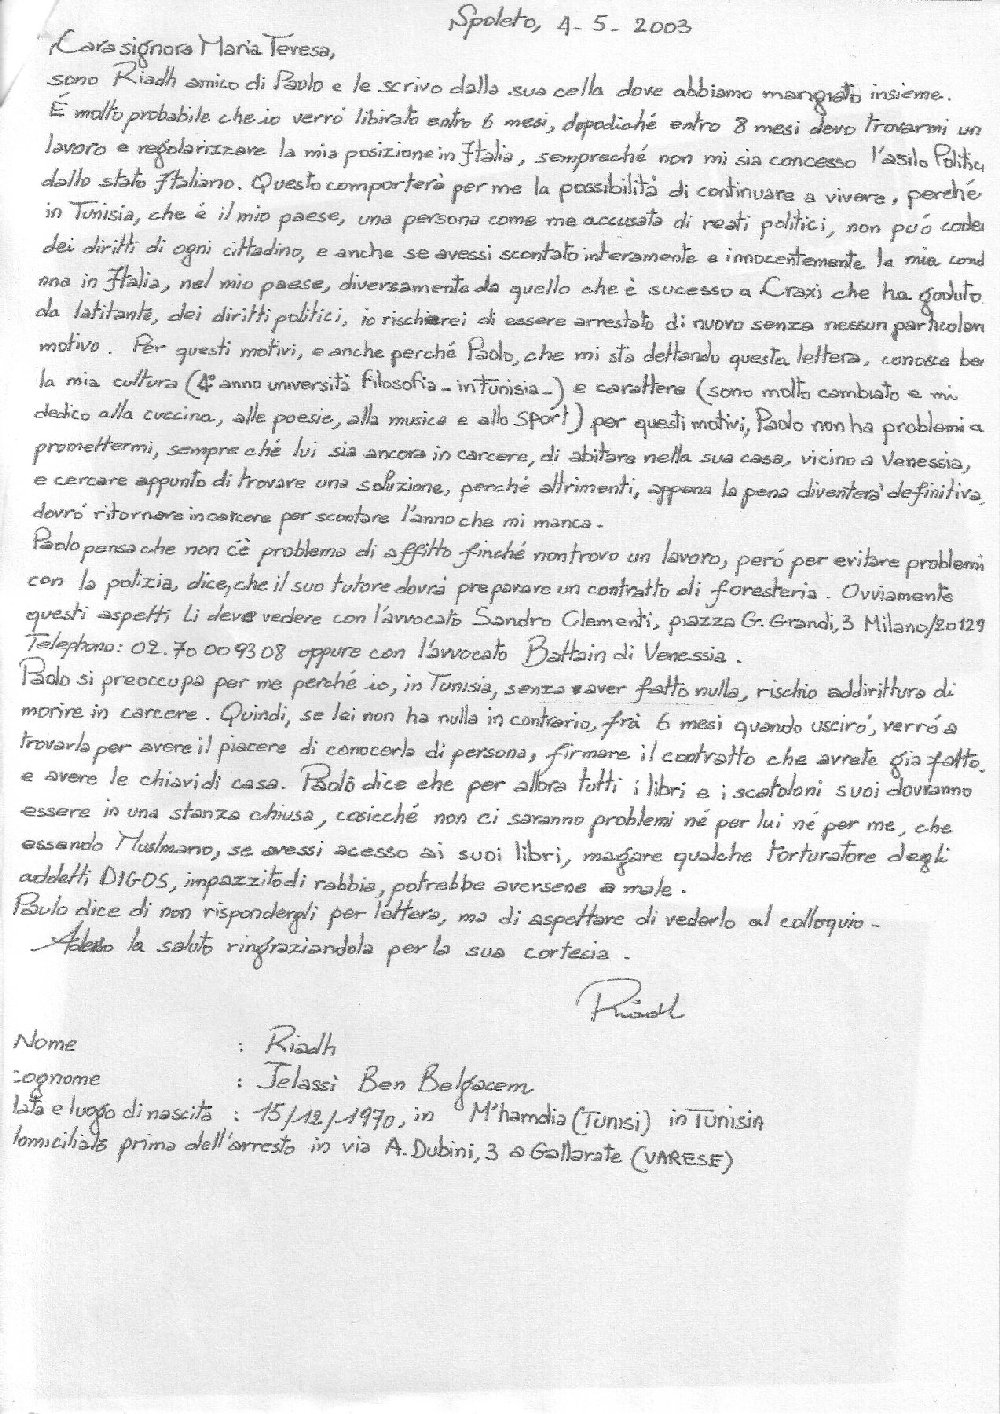 Spoleto, 4-5-2003
Cara signora Maria Teresa,
sono Riadh amico di Paolo e le scrivo dalla sua cella dove abbiamo mangiato insieme.
É molto probabile che io verró librato entro 6 mesi, dopodiché entro 8 mesi devo trovarmi un
lavoro e regolarizzare la mia posizione in Italia, sempreché non mi sia concesso l'asilo Politic
dallo stato Italiano. Questo comporterà per me la possibilità di continuare a vivere, perché
in Tunisia, che é il mio paese, una persona come me accusata di reati politici, non puó
dei diritti di ogni cittadino, e anche se avessi scontato interamente e innocentemente la mia cond
nna in Italia, nel mio paese, diversamente da quello che è sucesso a Craxi che ha goduto
da latitante, dei diritti politici, io rischierei di essere arrestato di nuovo senza nessun particolar
motivo. Per questi motivi, e anche perché Paolo, che mi sta dettando questa lettera, conosce be
la mia cultura (4º anno università filosofia - in Tunisia -) e carattere (sono molto cambiato e mi
dedico alla cuccina, alle poesie, alla musica e allo sport) per questi motivi, Paolo non ha problemi a
promettermi, sempre ché lui sia ancora in carcere, di abitare nella sua casa, vicino a Venessia,
e cercare appunto di trovare una soluzione, perché altrimenti, appena la pena diventerà definitiva,
dovró ritornare in carcere per scontare l'anno che mi manca.
Paolo pensa che non c'è problema di affitto finché non trovo un lavoro, peró per evitare problemi
con la polizia, dice, che il suo tutore dovrà preparare un contratto di foresteria. Ovviamente
questi aspetti Li deve vedere con l'avvocato Sandro Clementi, piazza G. Grandi, 3 Milano/20129
Telephono: 02.70 00 93 08 oppure con l'avvocato Battain di Venessia.
Paolo si preoccupa per me perché io, in Tunisia, senza aver fatto nulla, rischio addirittura di
morire in carcere. Quindi, se lei non ha nulla in contrario, frà 6 mesi quando usciró, verró a
trovarla per avere il piacere di conoscerla di persona, firmare il contratto che avrete gia fatto
e avere le chiavi di casa. Paolo dice che per allora tutti i libri e i scatoloni suoi dovranno
essere in una stanza chiusa, cosicché non ci saranno problemi né per lui né per me, che
essendo Muslmano, se avessi acesso ai suoi libri, magare qualche torturatore degli
addetti DIGOS, impazzito di rabbia, potrebbe aversene a male.
Paulo dice di non rispondergli per lettera, ma di aspettare di vederlo al colloquio -
Adesso la saluto ringraziandola per la sua cortesia.
Riadh
Nome : Riadh
cognome : Jelassi Ben Belgacem
data e luogo di nascita : 15/12/1970, in M'hamdia (Tunisi) in Tunisia
domiciliato prima dell'arresto in via A. Dubini, 3 a Gallarate (VARESE)